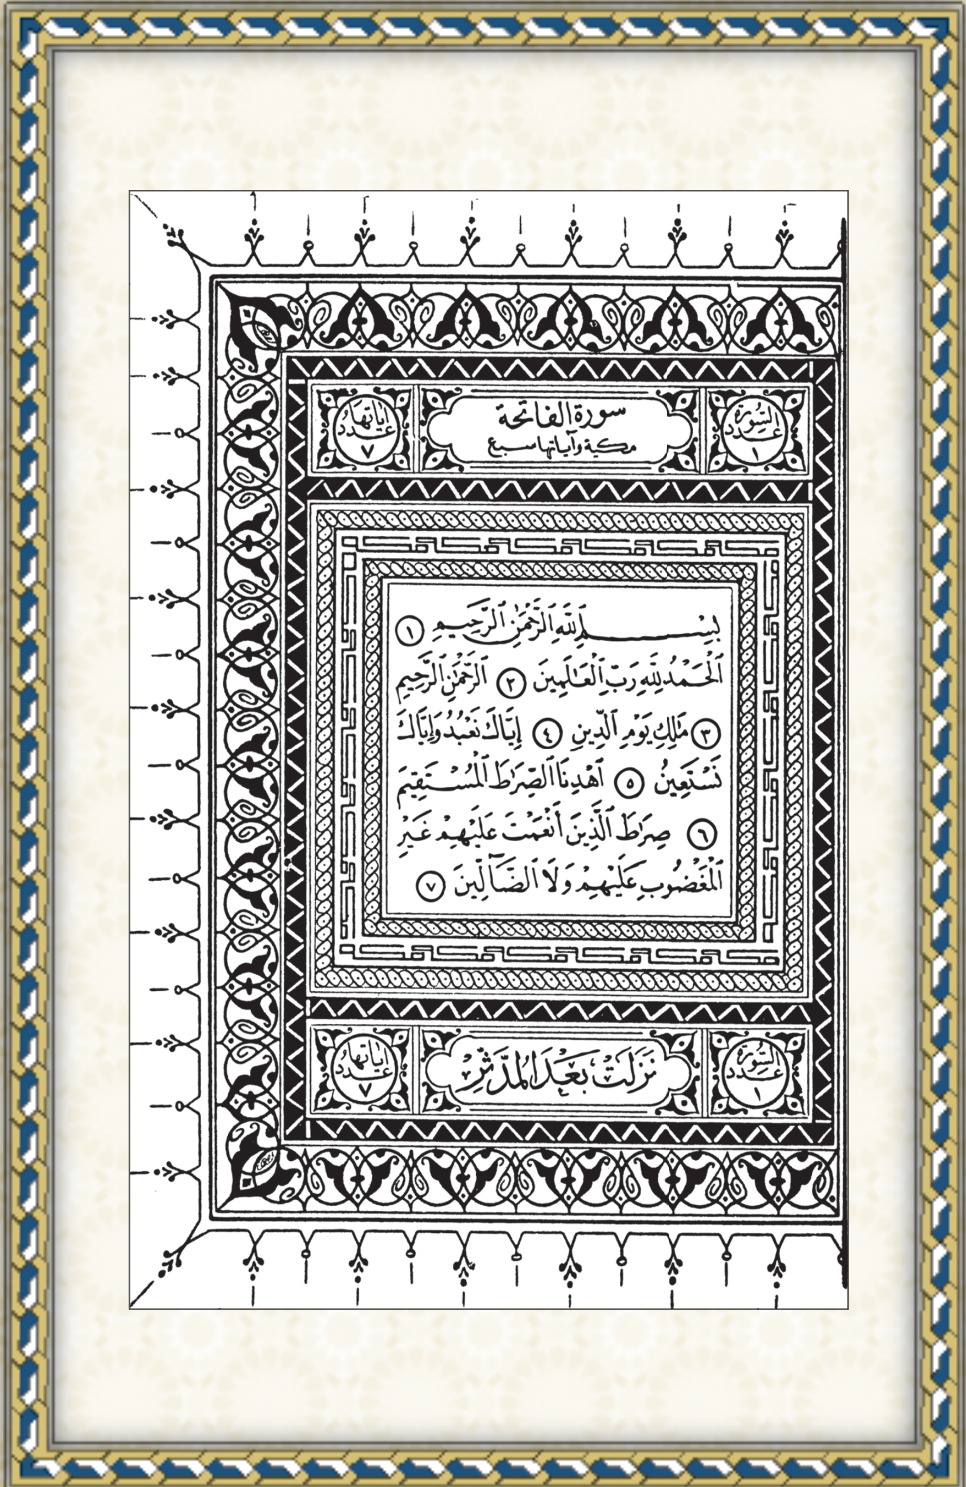 السورة عدد ١
سورة الفاتحة
مكية وآياتها سبع
آياتها عدد ٧
بِسْمِ ٱللَّهِ ٱلرَّحْمَٰنِ ٱلرَّحِيمِ ١
ٱلْحَمْدُ لِلَّهِ رَبِّ ٱلْعَٰلَمِينَ ٢ ٱلرَّحْمَٰنِ ٱلرَّحِيمِ
٣ مَٰلِكِ يَوْمِ ٱلدِّينِ ٤ إِيَّاكَ نَعْبُدُ وَإِيَّاكَ
نَسْتَعِينُ ٥ ٱهْدِنَا ٱلصِّرَٰطَ ٱلْمُسْتَقِيمَ
٦ صِرَٰطَ ٱلَّذِينَ أَنْعَمْتَ عَلَيْهِمْ غَيْرِ
ٱلْمَغْضُوبِ عَلَيْهِمْ وَلَا ٱلضَّآلِّينَ ٧
السورة عدد ١
نَزَلَتْ بَعْدَ المُدَّثِّرِ
آياتها عدد ٧